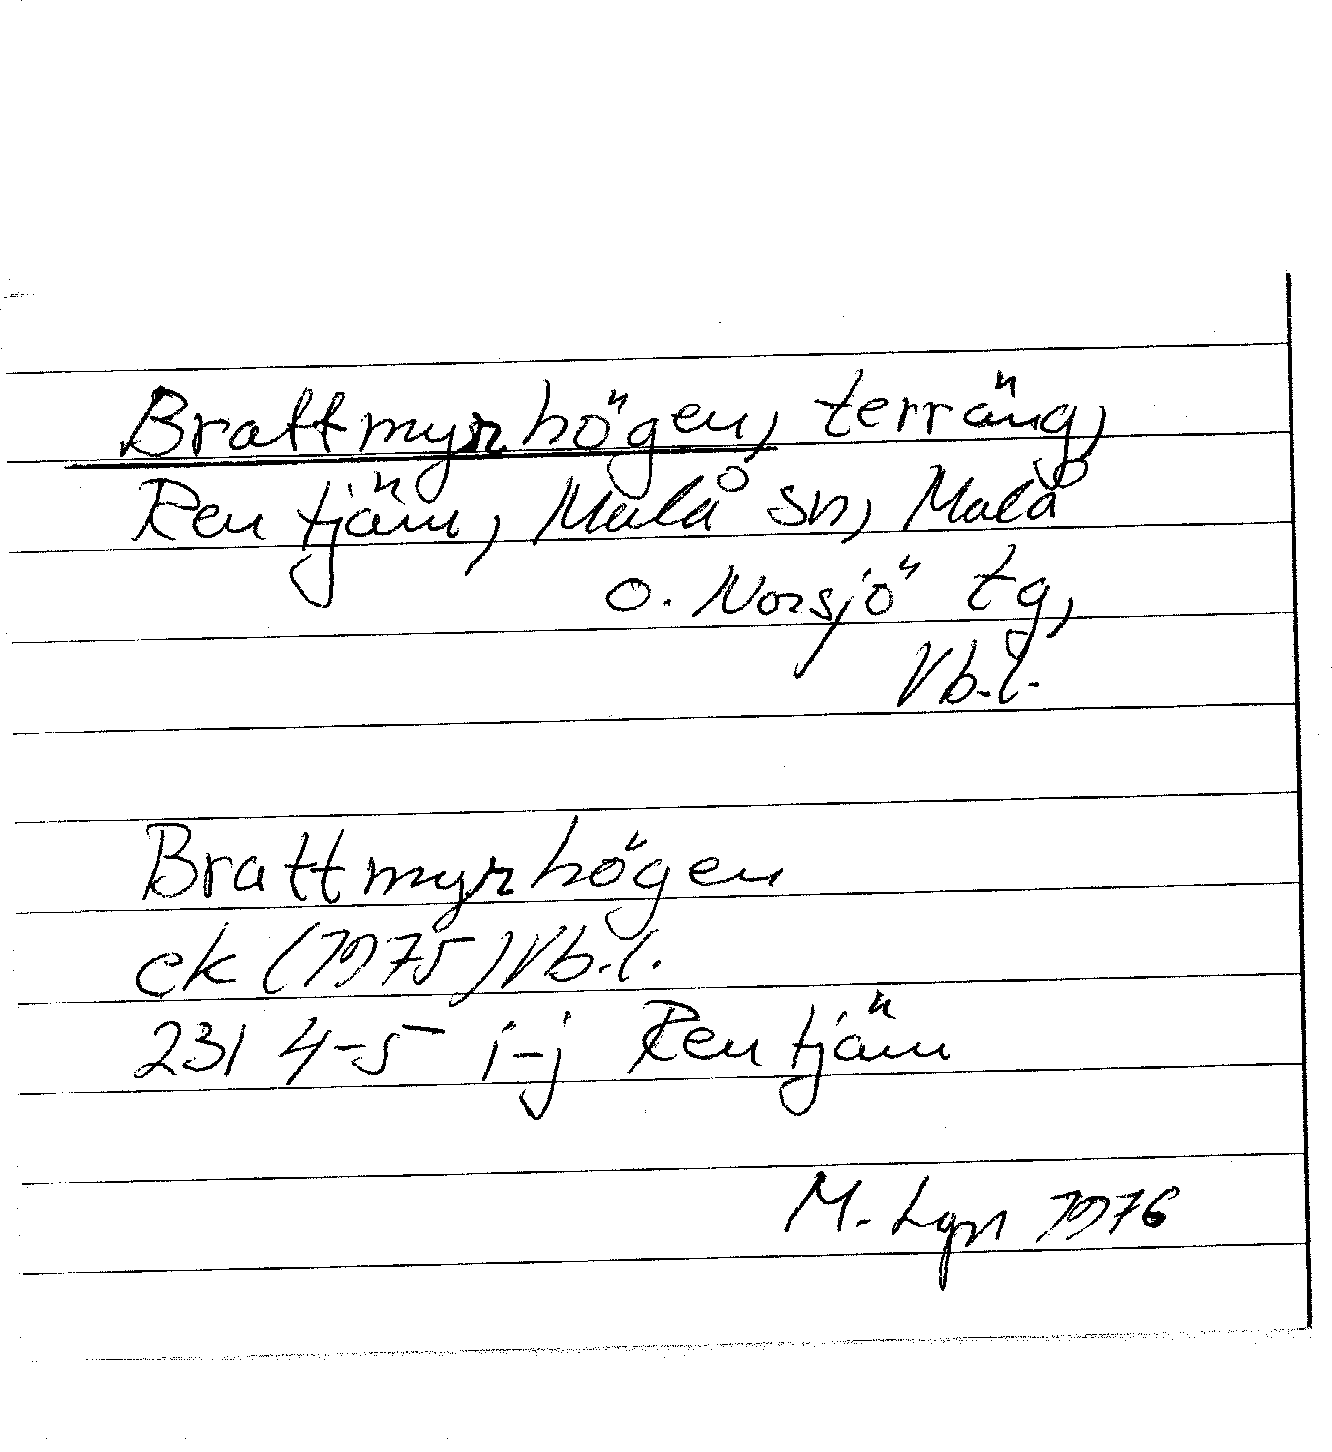 Brattmyrhögen, terräng,
Rentjärn, Malå sn, Malå
o. Norsjö tg,
Vb.l.
Brattmyrhögen
ek (1975) Vb.l.
23I 4-5 i-j Rentjärn
M. Lgn 1976